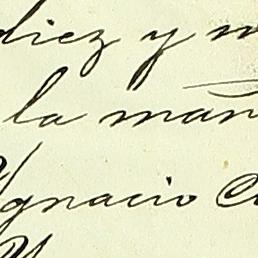 diez y m
la man
Ignacio C